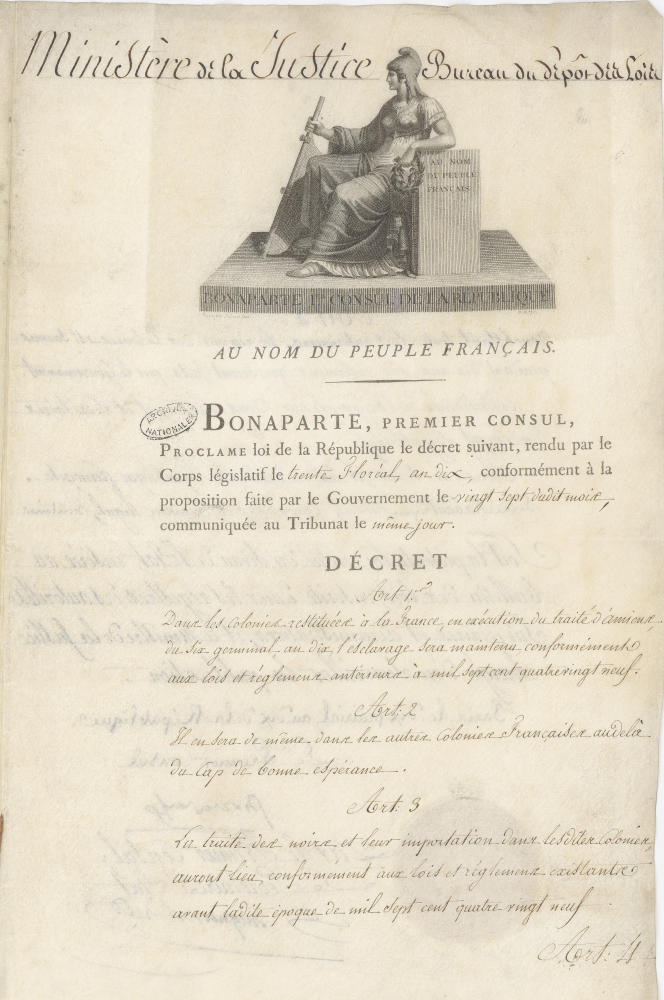 Ministère de la Justice Bureau du dépôt des Loix
AU NOM
DU PEUPLE
FRANÇAIS
BONAPARTE 1er CONSUL DE LA REPUBLIQUE
AU NOM DU PEUPLE FRANÇAIS.
ARCHIVES
NATIONALES
BONAPARTE, PREMIER CONSUL,
PROCLAME loi de la République le décret suivant, rendu par le
Corps législatif le trente Floréal, an dix, conformément à la
proposition faite par le Gouvernement le vingt sept dudit mois,
communiquée au Tribunat le même jour.
DÉCRET
Art. 1er
Dans les colonies restituées à la France, en exécution du traité d'amiens,
du six germinal, an dix l'esclavage sera maintenu conformément
aux lois et réglemens antérieurs à mil sept cent quatre vingt neuf.
Art: 2
Il en sera de même dans les autres colonies Françaises au delà
du Cap de bonne espérance.
Art: 3
La traite des noirs et leur importation dans lesdites Colonies,
auront lieu, conformément aux lois et réglemens existants
avant ladite époque de mil sept cent quatre vingt neuf
Art: 4